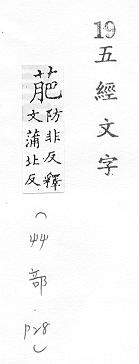 19五經文字
萉
防非反釋
文蒲北反
(艸部.p28)